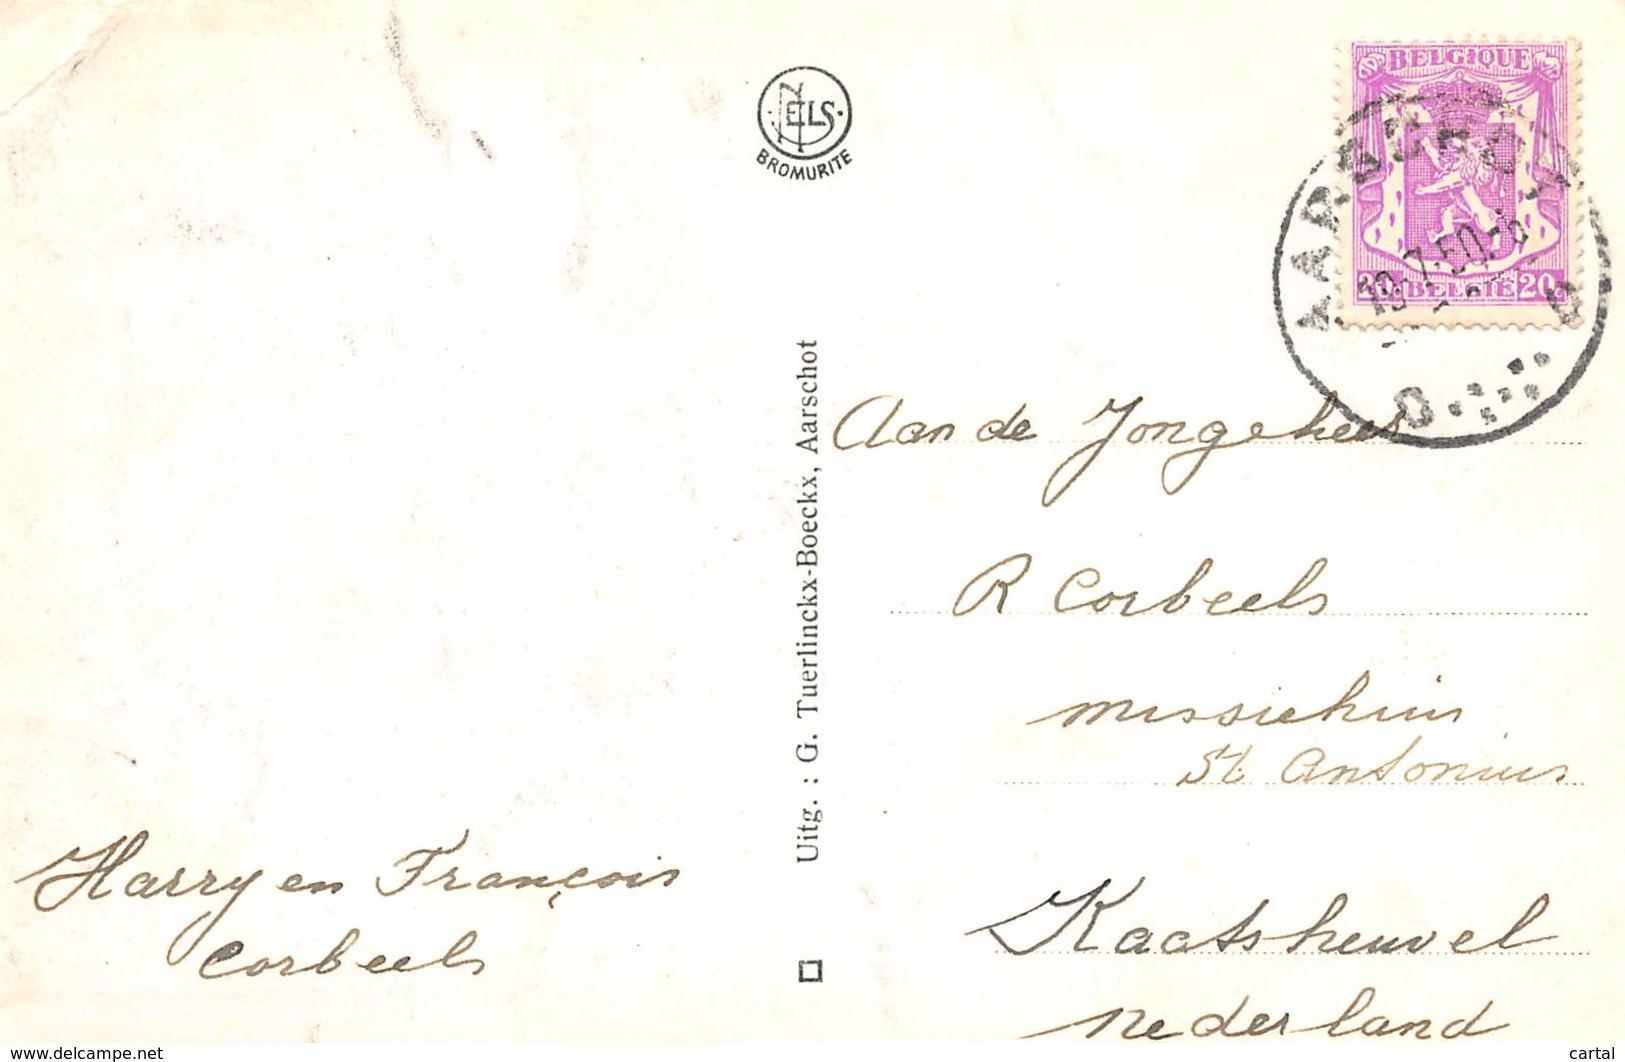 NELS
BROMURITE
BELGIQUE
AARSCHOT
19.-7.50.-
20c BELGIE 20c
Uitg. : G. Tuerlinckx-Boeckx, Aarschot
Aan de Jongeheer
R Corbeels
missiehuis
St. Antonius
Kaatsheuvel
nederland
Harry en François
Corbeels
www.delcampe.net
cartal